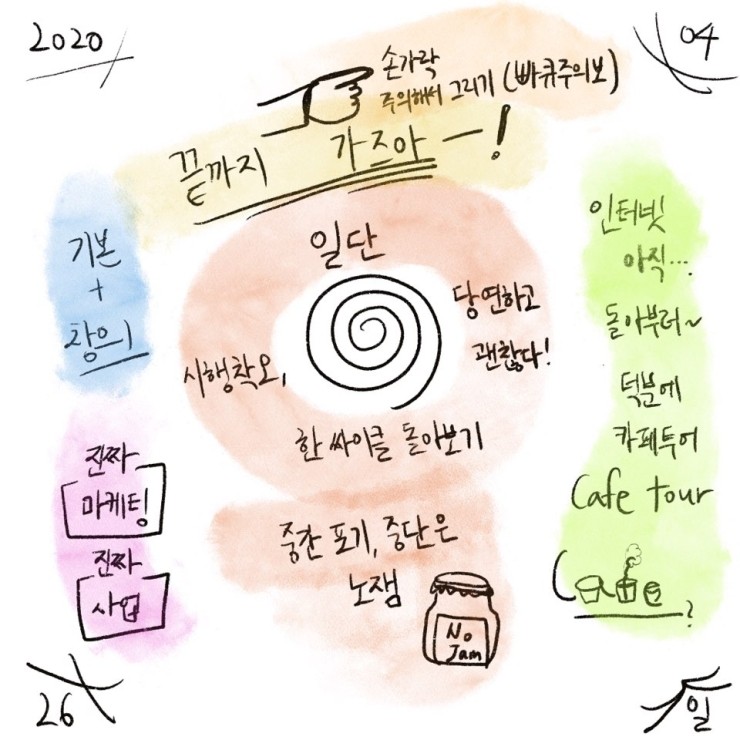 2020
04
손가락
주의해서 그리기 (빠큐주의보)
끝까지 가즈아ㅡ!
기본
+
창의
일단
당연하고
괜찮다!
시행착오,
한 싸이클 돌아보기
인터넷
아직...
돌아부러~
덕분에
카페투어
Cafe tour
Cafe?
진짜
마케팅
진짜
사업
중간 포기, 중단은
노잼
No
Jam
26
일